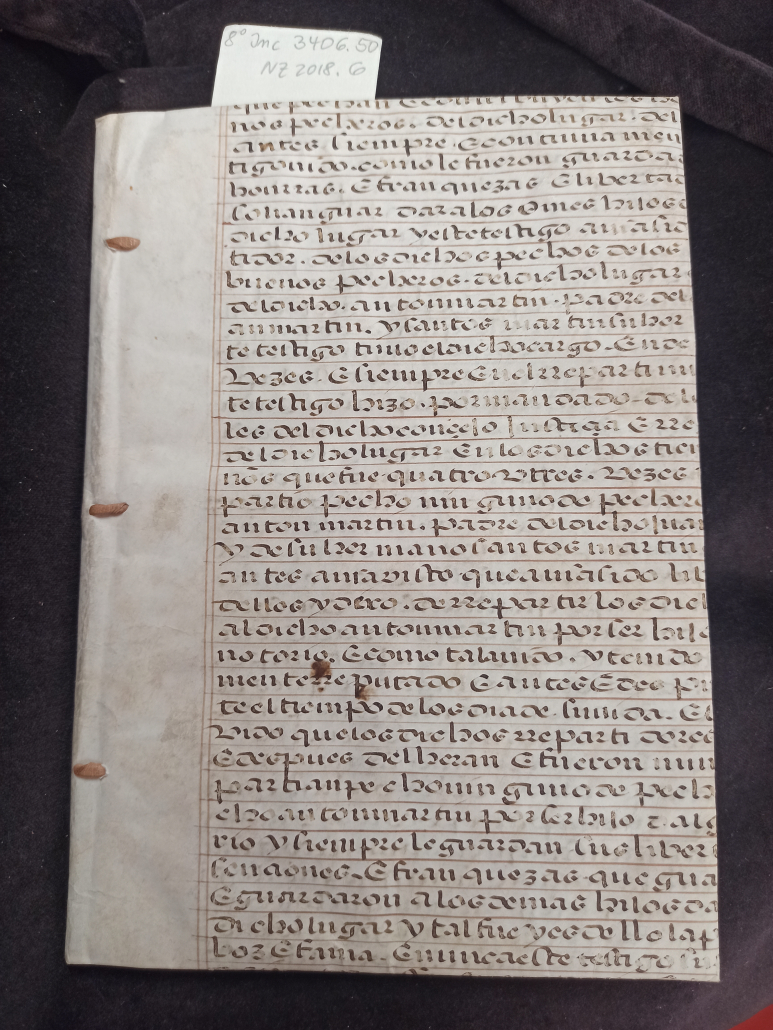 8° Inc 3406.50
NZ 2018. 6
nos pecheros. del dicho lugar. del
antes. siempre E continuamen
tigovido. como le fueron guarda
honrras. E franquezas E liberta
solian guardar a los omes hijos
dicho lugar y este testigo a
tidor. de los dichos pechos de los
buenos pecheros. del dicho lugar
del dicho. anton martin. padre del
an martin. y santos martin su her
te testigo tuvo el dicho cargo. En de
Vezes. E siempre En el rreparti
te testigo hizo. por mandado. de
les del dicho conçejo Justiçia E rre
del dicho lugar En los dichos tien
que fue quatro o tres. Vezes
partio pecho ninguno de pechero
anton martin. padre del dicho Juan
y de su hermano santos martin
antes a visto que a sido
dellos y de rrepartir los dich
al dicho anton martin por ser hijo
notorio. E como tal y tenido
mente rreputado E antes E des
te el tiempo de los dia de su vida. E
Vido que los dichos rrepartidores
E despues del heran E fueron
partian pecho ninguno de pech
cho anton martin por ser hijo de alg
rio y siempre le guardan sus liber
senciones. E franquezas que gua
E guardaron a los demas hijos da
dicho lugar y tal fue y es dello la p
boz E fama. E nunca este testigo